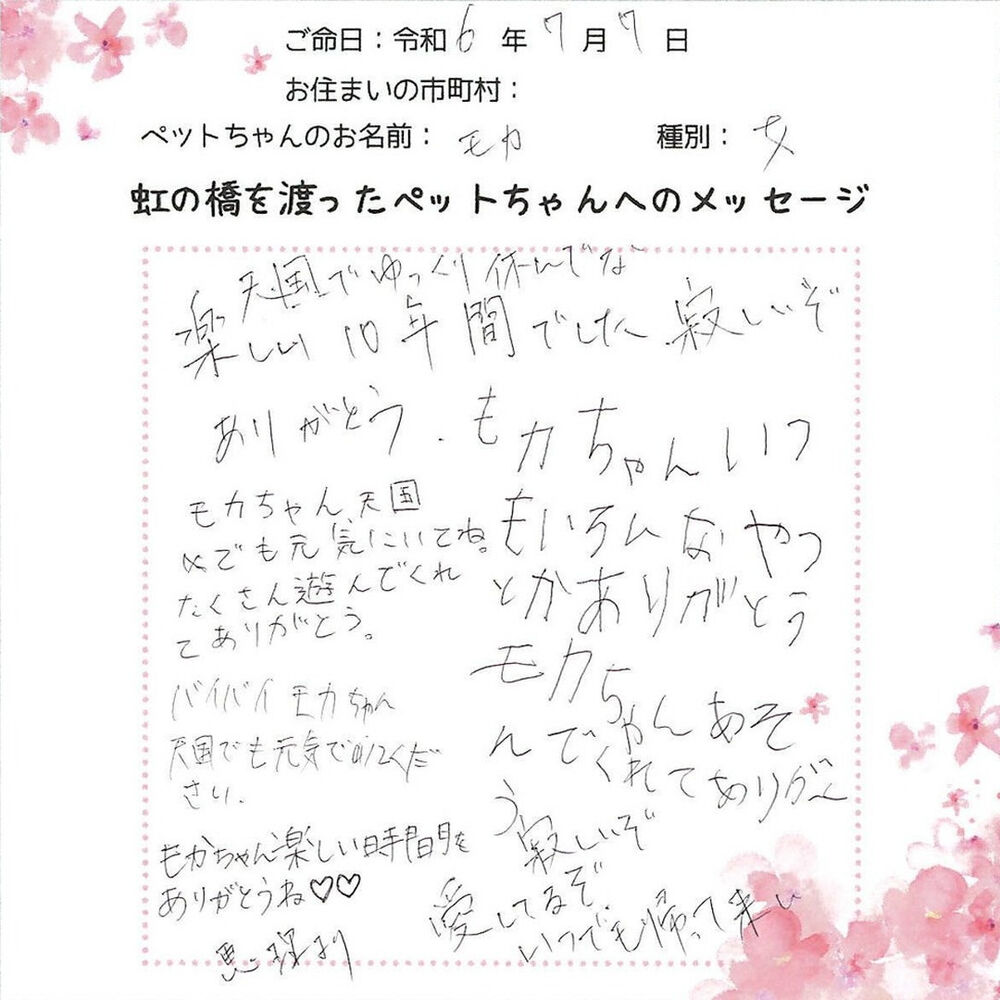 ご命日：令和6年7月7日
お住まいの市町村：
ペットちゃんのお名前：モカ 種別：女
虹の橋を渡ったペットちゃんへのメッセージ
天国でゆっくり休んでな
楽しい10年間でした 寂しいぞ
ありがとう.
もカちゃんいつ
もいろんなやつ
とかありがとう
モカち
ゃんあそ
んでくれてありがと
う
モカちゃん天国
でも元気にいてね。
たくさん遊んでくれ
てありがとう。
バイバイモカちゃん
天国でも元気で くだ
さい.
もかちゃん楽しい時間を
ありがとうね♡♡
寂しいぞ
愛してるぞ.
いつでも帰って来い
より